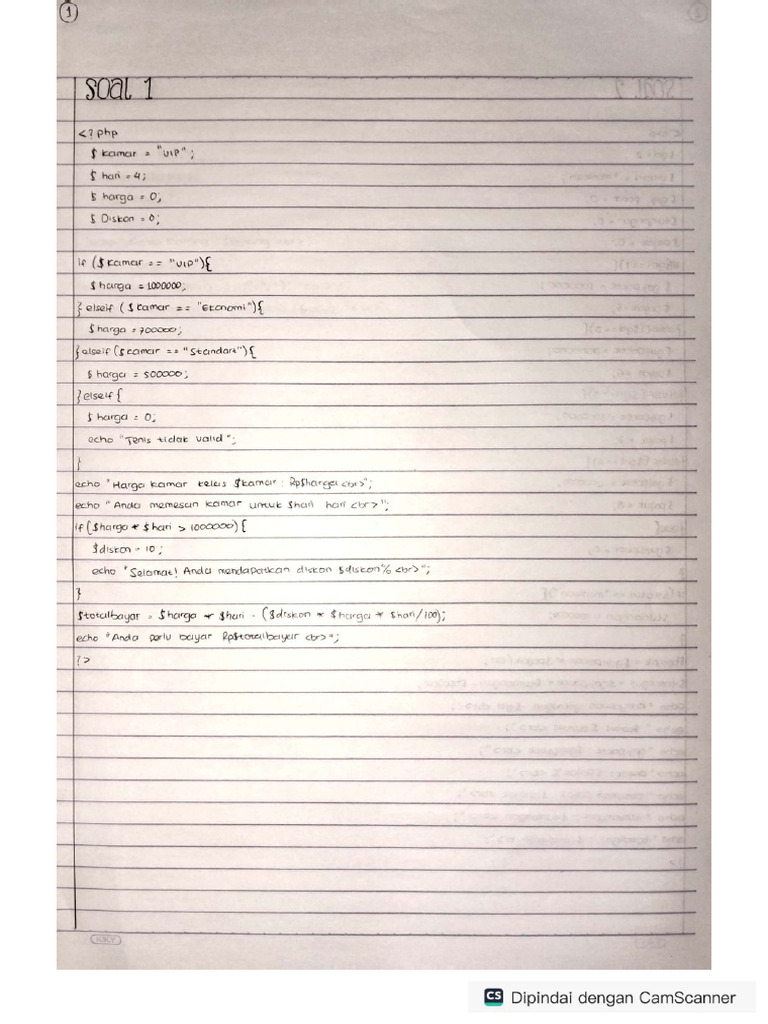 1
SOAL 1
<?php
$ kamar = "VIP";
$ hari = 4;
$ harga = 0;
$ Diskon = 0;
if ($kamar == "VIP"){
$ harga = 1000000;
} elseif ($ kamar == "Ekonomi"){
$ harga = 700000;
} elseif ($ kamar == "Standart"){
$ harga = 500000;
} else {
$ harga = 0;
echo "Jenis tidak valid";
}
echo "Harga kamar kelas $kamar : Rp$harga <br>";
echo "Anda memesan kamar untuk $hari hari <br>";
if ($harga * $hari > 1000000) {
$diskon = 10;
echo "Selamat! Anda mendapatkan diskon $diskon% <br>";
}
$totalbayar = $harga * $hari - ($diskon * $harga * $hari/100);
echo "Anda perlu bayar Rp$totalbayar <br>";
?>
KIKY
CS Dipindai dengan CamScanner